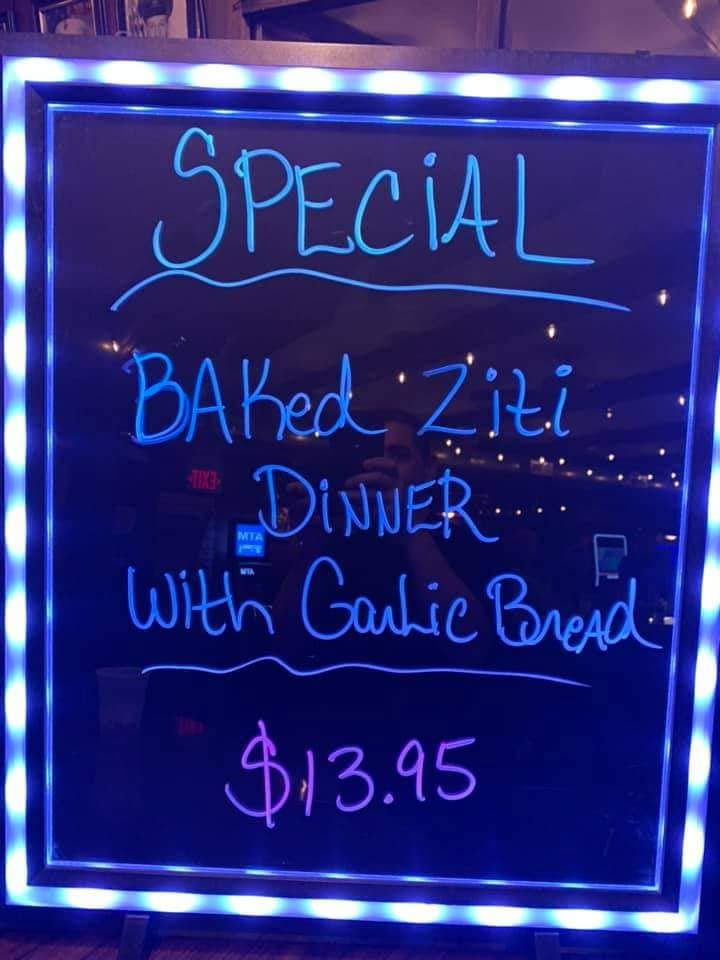 SPECiAL
BAKed Ziti
DiNNER
With Garlic Bread
$13.95
EXIT
MTA
MTA